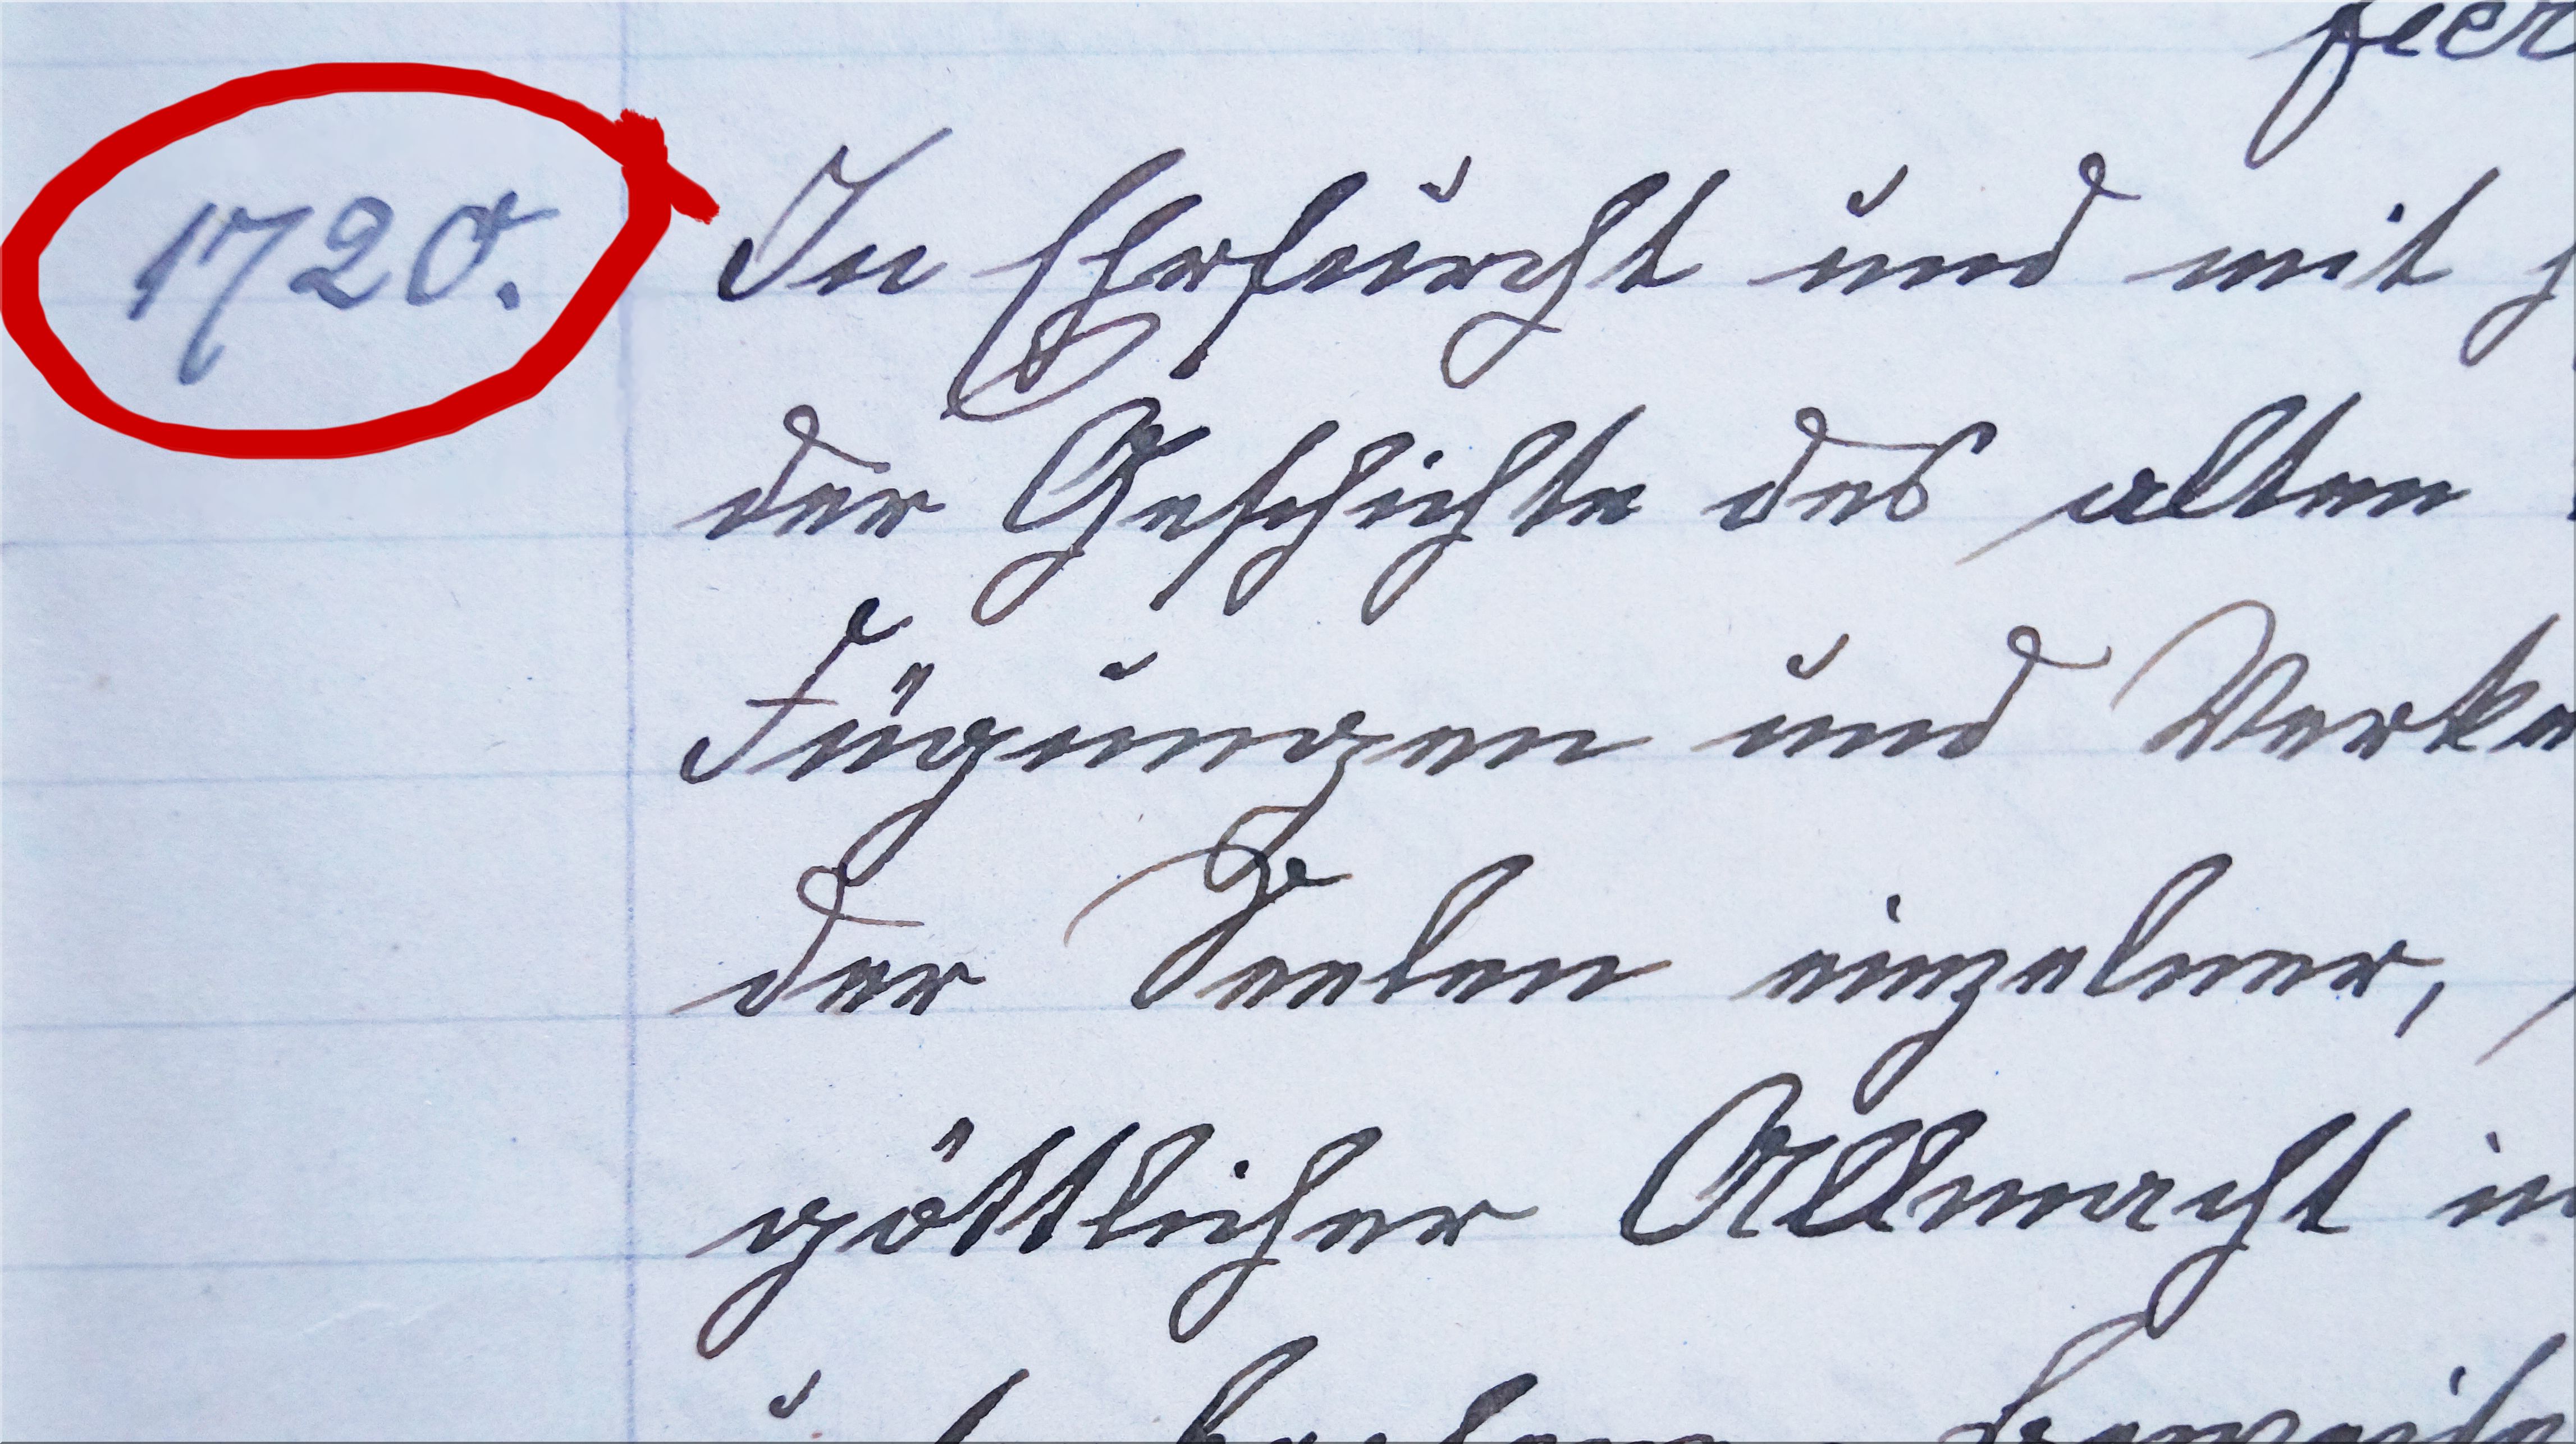 1720.
In Ehrfurcht und mit
der Geschichte des alten
Fügungen und
der Seelen einzelner,
göttlicher Allmacht